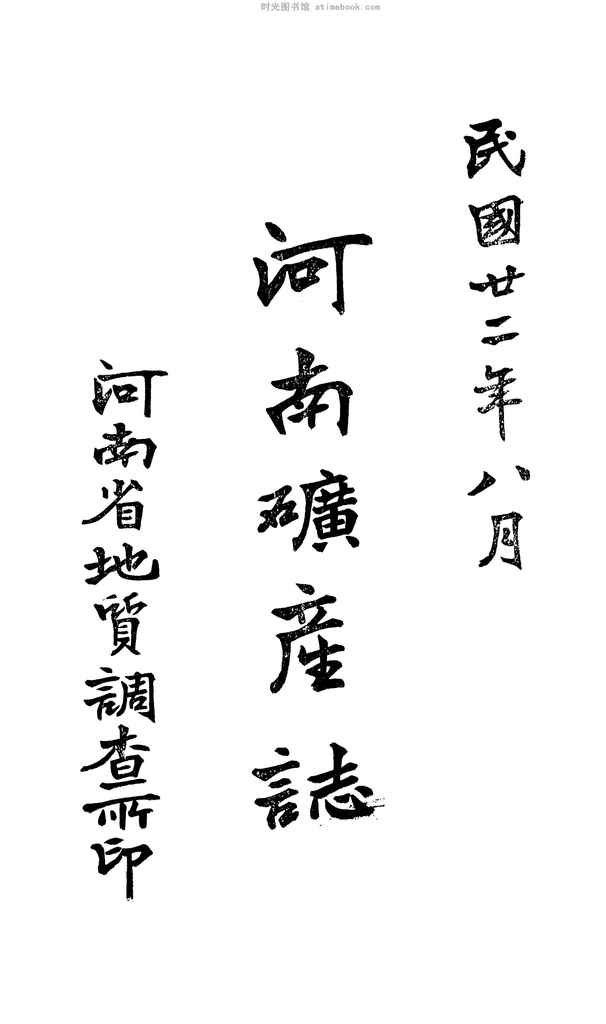 时光图书馆 atimebook.com
民國廿二年八月
河南礦産誌
河南省地質調查所印